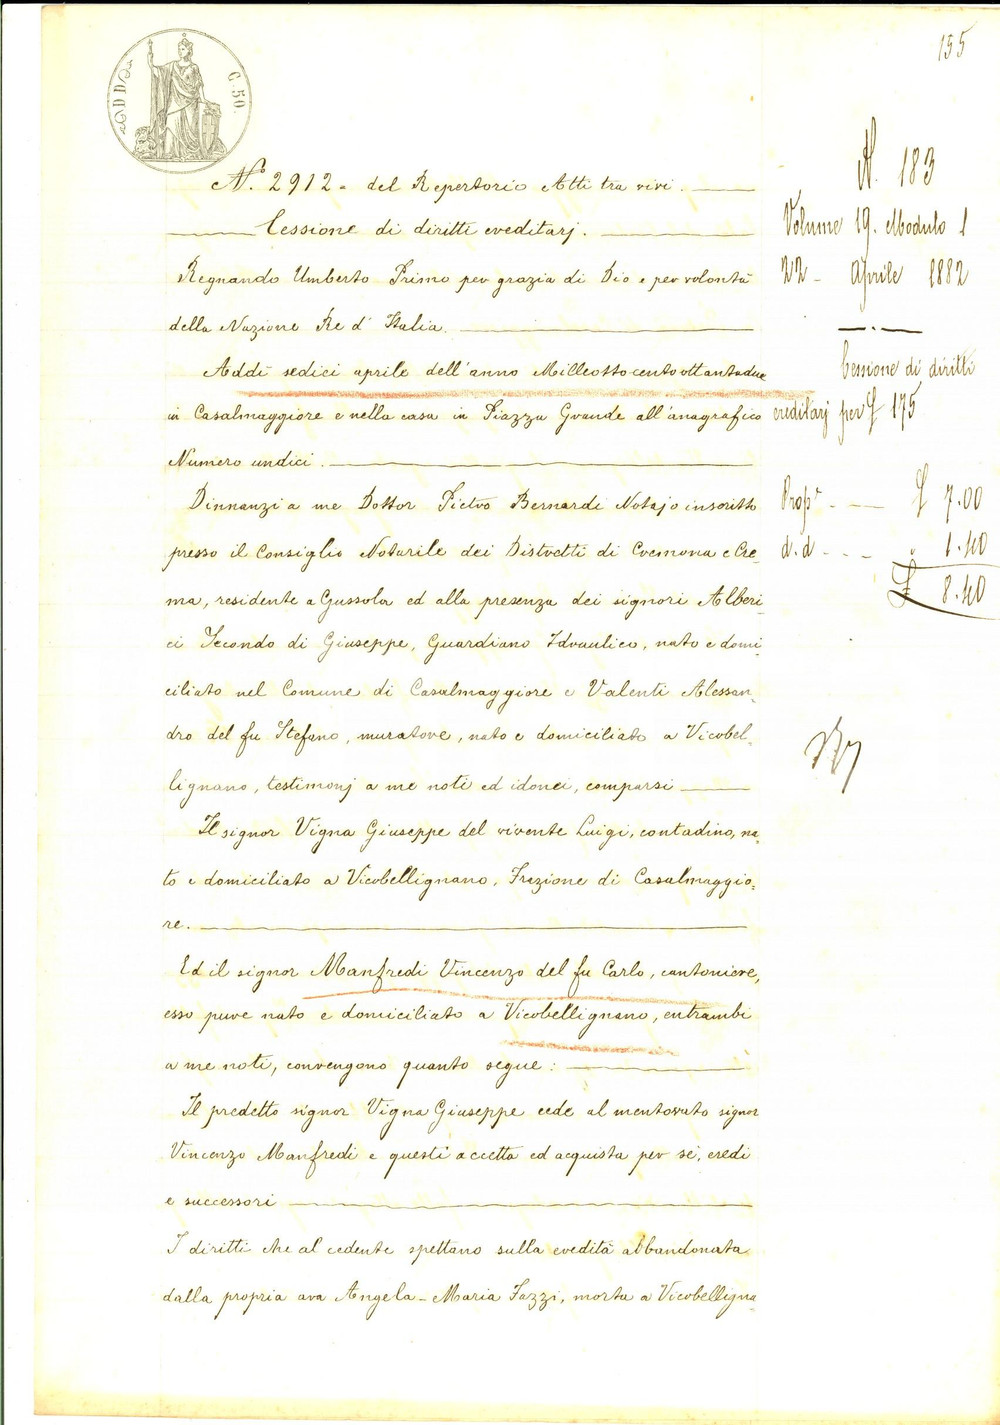 155
C. 50.
N.° 2912 = del Repertorio Atti tra vivi.
Cessione di diritti ereditarj.
Regnando Umberto Primo per grazia di Dio e per volontà
della Nazione Re d'Italia.
Addì sedici aprile dell'anno Milleottocentoottantadue
in Casalmaggiore e nella casa in Piazza Grande all'anagrafico
Numero undici.
Dinnanzi a me Dottor Pietro Bernardi Notajo inscritto
presso il Consiglio Notarile dei Distretti di Cremona e Cre=
ma, residente a Gussola ed alla presenza dei signori Alberi=
ci Secondo di Giuseppe, Guardiano Idraulico, nato e domi=
ciliato nel Comune di Casalmaggiore e Valenti Alessan=
dro del fu Stefano, muratore, nato e domiciliato a Vicobel=
lignano, testimonj a me noti ed idonei, comparsi
Il signor Vigna Giuseppe del vivente Luigi, contadino, na=
to e domiciliato a Vicobellignano, Frazione di Casalmaggio=
re.
Ed il signor Manfredi Vincenzo del fu Carlo, cantoniere,
esso pure nato e domiciliato a Vicobellignano, entrambi
a me noti, convengono quanto segue:
Il predetto signor Vigna Giuseppe cede al mentovato signor
Vincenzo Manfredi e questi accetta ed acquista per sé, eredi
e successori
I diritti che al cedente spettano sulla eredità abbandonata
dalla propria ava Angela-Maria Fazzi, morta a Vicobelligna=
N. 183
Volume 19. Modulo 1
22 - Aprile 1882
Cessione di diritti
ereditarj per £ 175
Prop.e - — £ 7.00
d.d - - - " 1.40
£ 8.40